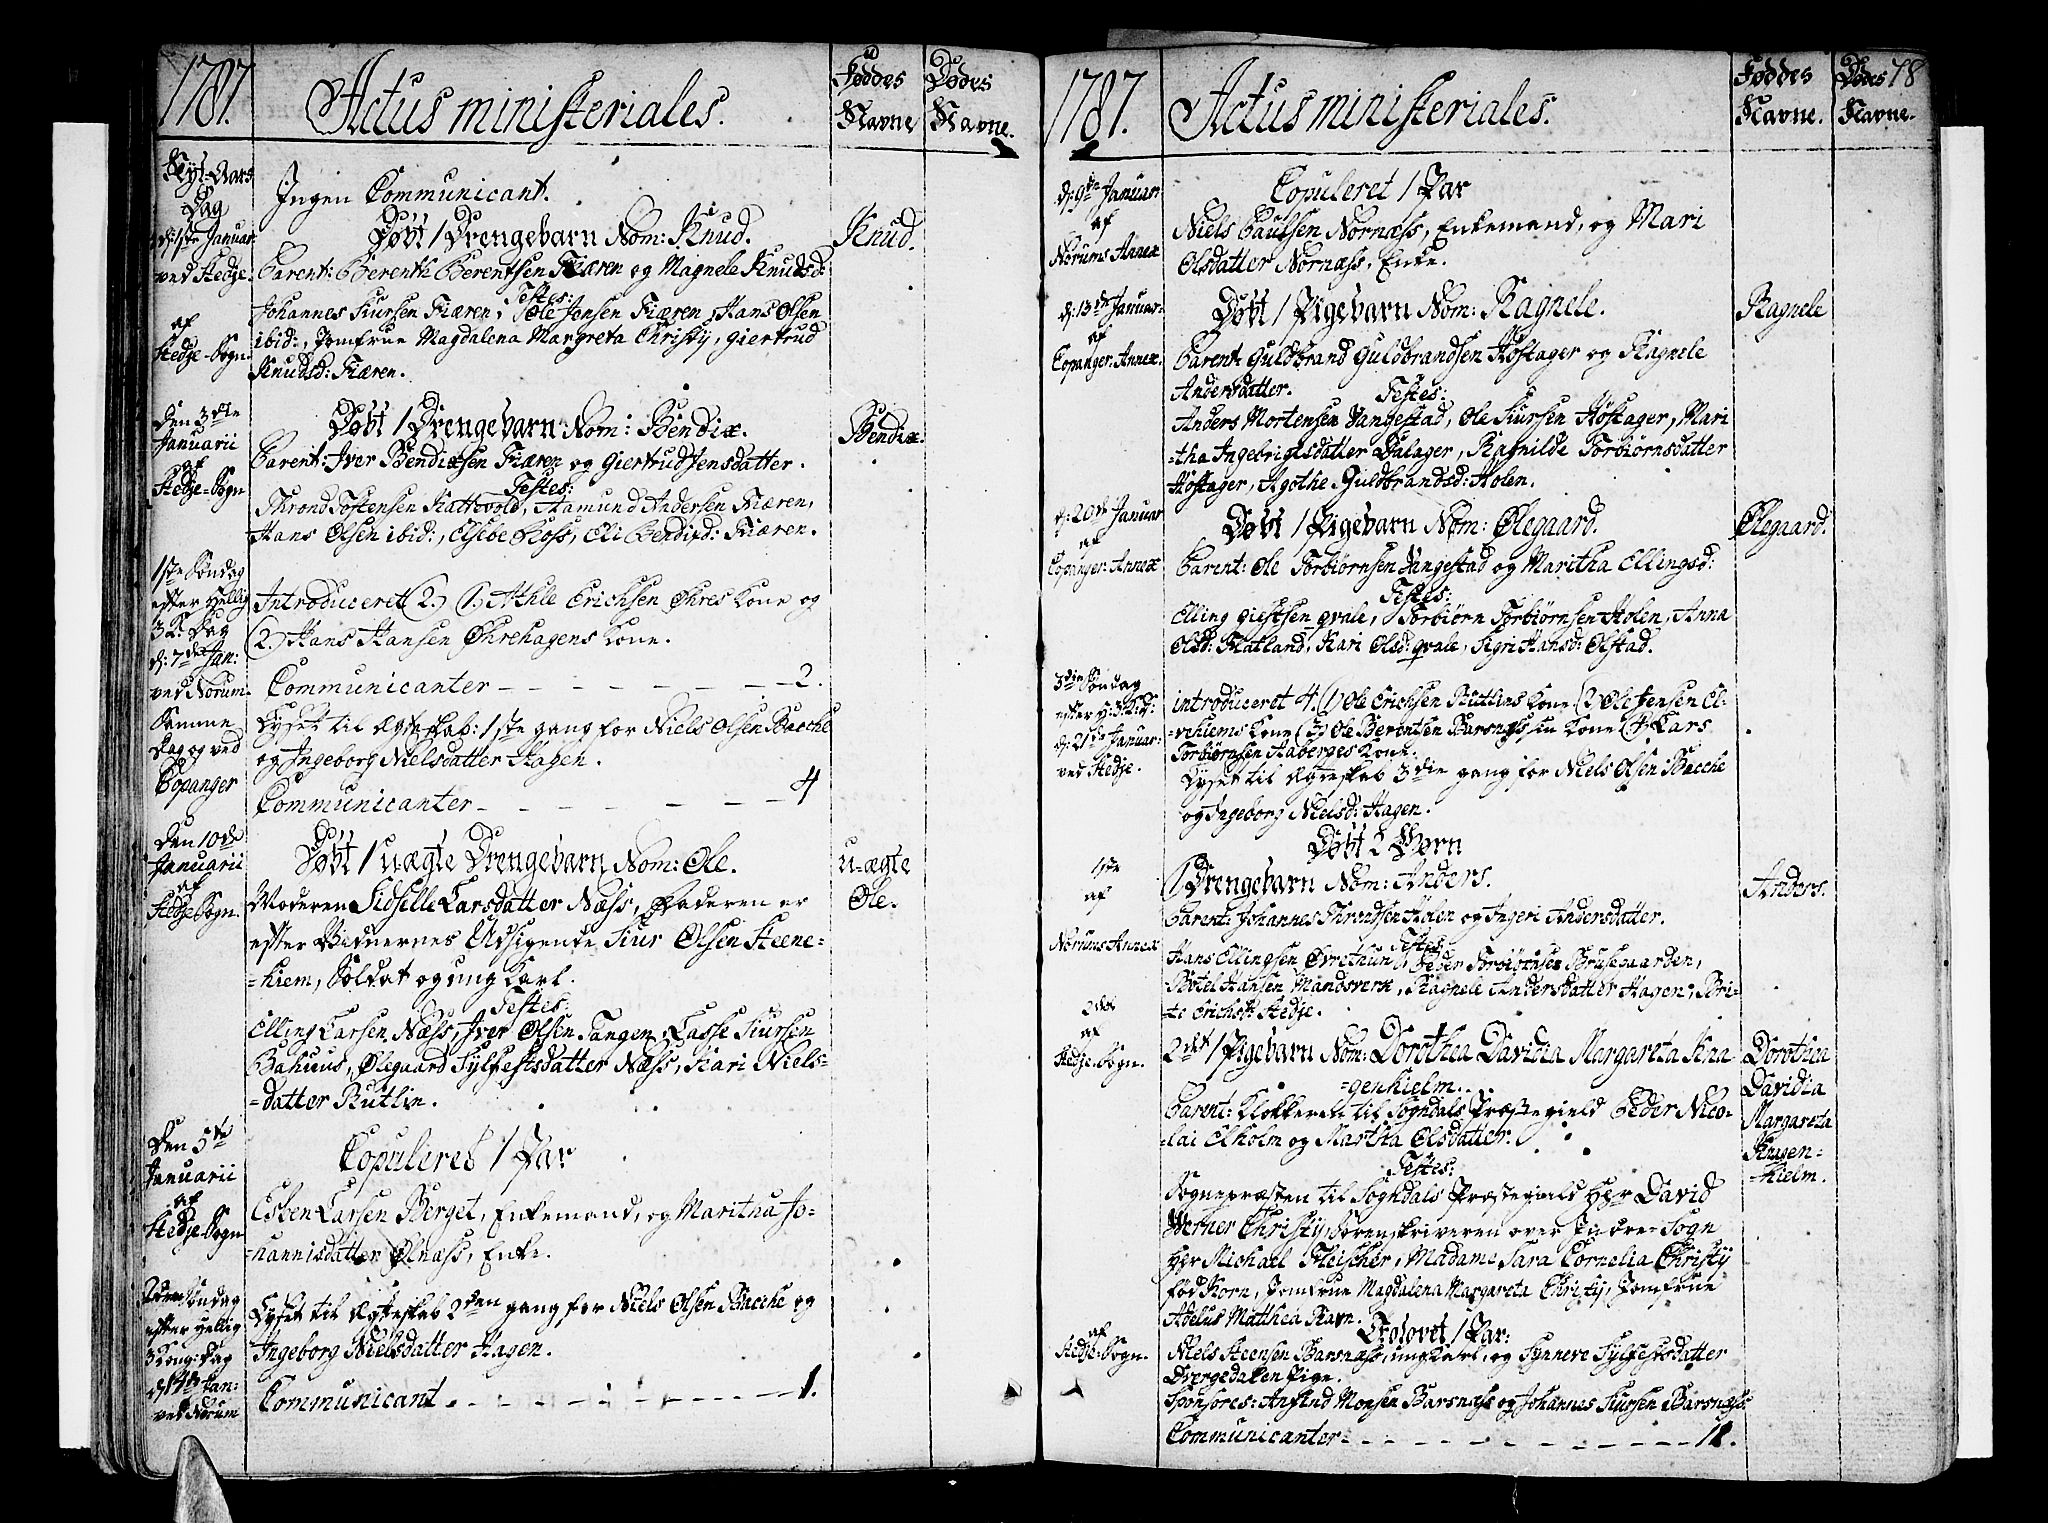 1787.
Actus ministeriales.
Føddes Navne
Dødes Navne.
Nyt-Aars
Dag
d: 1ste Januar
ved Stedje
af
Stedje-Sogn
Ingen Communicant.
Døbt 1 Drengebarn Nom: Knud.
Knud.
Parent: Berenth Berentsen Kiæren og Magnele Knudsd:
Testes:
Johannes Siursen Kiæren, Ole Jensen Kiæren, Hans Olsen
ibid:, Jomfrue Magdalena Margreta Christy, Giertrud
Knudsd: Kiæren.
Den 3die
Januarii
af
Stedje-Sogn
Døbt 1 Drengebarn Nom: Bendix.
Bendix.
Parent: Iver Bendixsen Kiæren og Giertrud Jensdatter.
Testes:
Thrond Tostensen Kattevold, Aamund Andersen Kiæren,
Hans Olsen ibid:, Elsebe Ross, Eli Bendixd: Kiæren.
1ste Søndag
efter Hellig
3 K: Dag
d: 7de Jan:
ved Norum
Introduceret (2.) (1.) Athle Erichsen Øhres Kone og
(2.) Hans Hansen Øhrehagens Kone.
Communicanter - - - - - - - 2.
Samme
Dag og ved
Copanger
Lyset til Ægteskab: 1ste gang for Niels Olsen Bacche
og Ingeborg Nielsdatter Hagen.
Communicanter - - - - - - - 4
Den 10de
Januarii
af
Stedje Sogn.
Døbt 1 uægte Drengebarn Nom: Ole.
u-ægte
Ole.
Moderen Sidselle Larsdatter Næss, Faderen er
efter Vidnernes Udsigende, Siur Olsen Steene-
=hiem, Soldat og ung Karl.
Testes:
Elling Larsen Næss, Iver Olsen Tangen, Lasse Siursen
Bahuus, Ølegaard Sylfestsdatter Næss, Kari Niels-
=datter Rutlin.
Den 5te
Januarii
af
Stedje-Sogn
Copuleret 1 Par
Esben Larsen Berget, Enkemand, og Maritha Jo-
=hannisdatter Ølnæss, Enke.
2den Søndag
efter Hellig
3 Kong: Dag
d: 14de Jan:
ved Norum
Lyset til Ægteskab 2den gang for Niels Olsen Bacche og
Ingeborg Nielsdatter Hagen.
Communicant - - - - - - - 1.
1787.
Actus ministeriales.
Føddes Navne.
Dødes Navne.
78
d: 9de Januar
af
Norums Annex
Copuleret 1 Par
Niels Paulsen Nornæss, Enkemand, og Mari
Olsdatter Nornæss, Enke.
d: 13de Januar:
af
Copanger-Annex.
Døbt 1 Pigebarn Nom: Ragnele.
Ragnele
Parent: Guldbrand Guldbrandsen Høstager og Ragnele
Andersdatter.
Testes:
Anders Mortensen Vangestad, Ole Siursen Høstager, Mari
=tha Ingebrigtsdatter Dalager, Ragnilde Torbiørnsdatter
Høstager, Agothe Guldbrandsd: Holen.
d: 20de Januar
af
Copanger-Annex
Døbt 1 Pigebarn Nom: Ølegaard.
Ølegaard.
Parent: Ole Torbiørnsen Vangestad og Maritha Ellingsd:
Testes:
Elling Giestsen qvale, Torbiørn Torbiørnsen Holen, Anna
Olsd: Flatland, Kari Olsd: qvale, Sigri Hansd: Ølstad.
3die Søndag
efter H: 3: K: D:
d: 21de Januar:
ved Stedje.
introduceret 4. (1) Ole Erichsen Rutlins Kone (2) Ole Jensen El-
=vehiems Kone (3) Ole Berentsen Barsnæss, sin Kone (4) Lars
Torbiørnsen Aaberges Kone.
Lyset til Ægteskab 3die gang for Niels Olsen Bacche
og Ingeborg Nielsd: Hagen.
Døbt 2 Børn
1ste
af
Norums Annex
1 Drengebarn Nom: Anders.
Anders.
Parent: Johannes Throndsen Holen og Ingeri Andersdatter.
Testes:
Hans Ellingsen Øvrethun, Peder Torbiørnsen Brusegaarden,
Botel Hansen Mandsverk, Ragnele Andersdatter Hagen, Bri-
te Erichsd: Stedje.
2det
af
Stedje-Sogn.
2det 1 Pigebarn Nom: Dorothea Davidia Margareta Kna
=genhielm.
Dorothea
Davidia
Margareta
Knagen-
=hielm.
Parent: Klokkeren til Sogndals Præstegield Peder Nico-
=lai Elholm og Martha Olsdatter.
Testes:
Sognepræsten til Sogndals Præstegield Hr David
Werner Christy, Sorenskriveren over Indre-Sogn
Hr Michael Fleischer, Madame Sara Cornelia Christy
fød Korn, Jomfrue Magdalena Margareta Christy, Jomfrue
Adelus Matthea Ravn.
af
Stedje-Sogn.
Trolovet 1 Par:
Niels Steensen Barsnæss, ungkarl, og Synneve Sylfestsdatter
Dvergedalen Pige.
Sponsores: Anfind Monsen Barsnæss og Johannes Siursen Barsnæss.
Communicanter - - - - - - - 11.